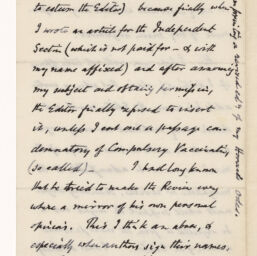 to esteem the Editor) because finally when
I wrote an article for the Independent
Section (which is not paid for - & with
my name affixed) and after announcing
my subject and obtaining permission,
the Editor finally refused to insert
it, unless I cut out a passage con-
demnatory of Compulsory Vaccination
(so called) - I had long known
that he tried to make the Review every
where a mirror of his own personal
opinions. This I think an abuse, &
especially when authors sign their names,
a revised edtn of my Horace's Odes.